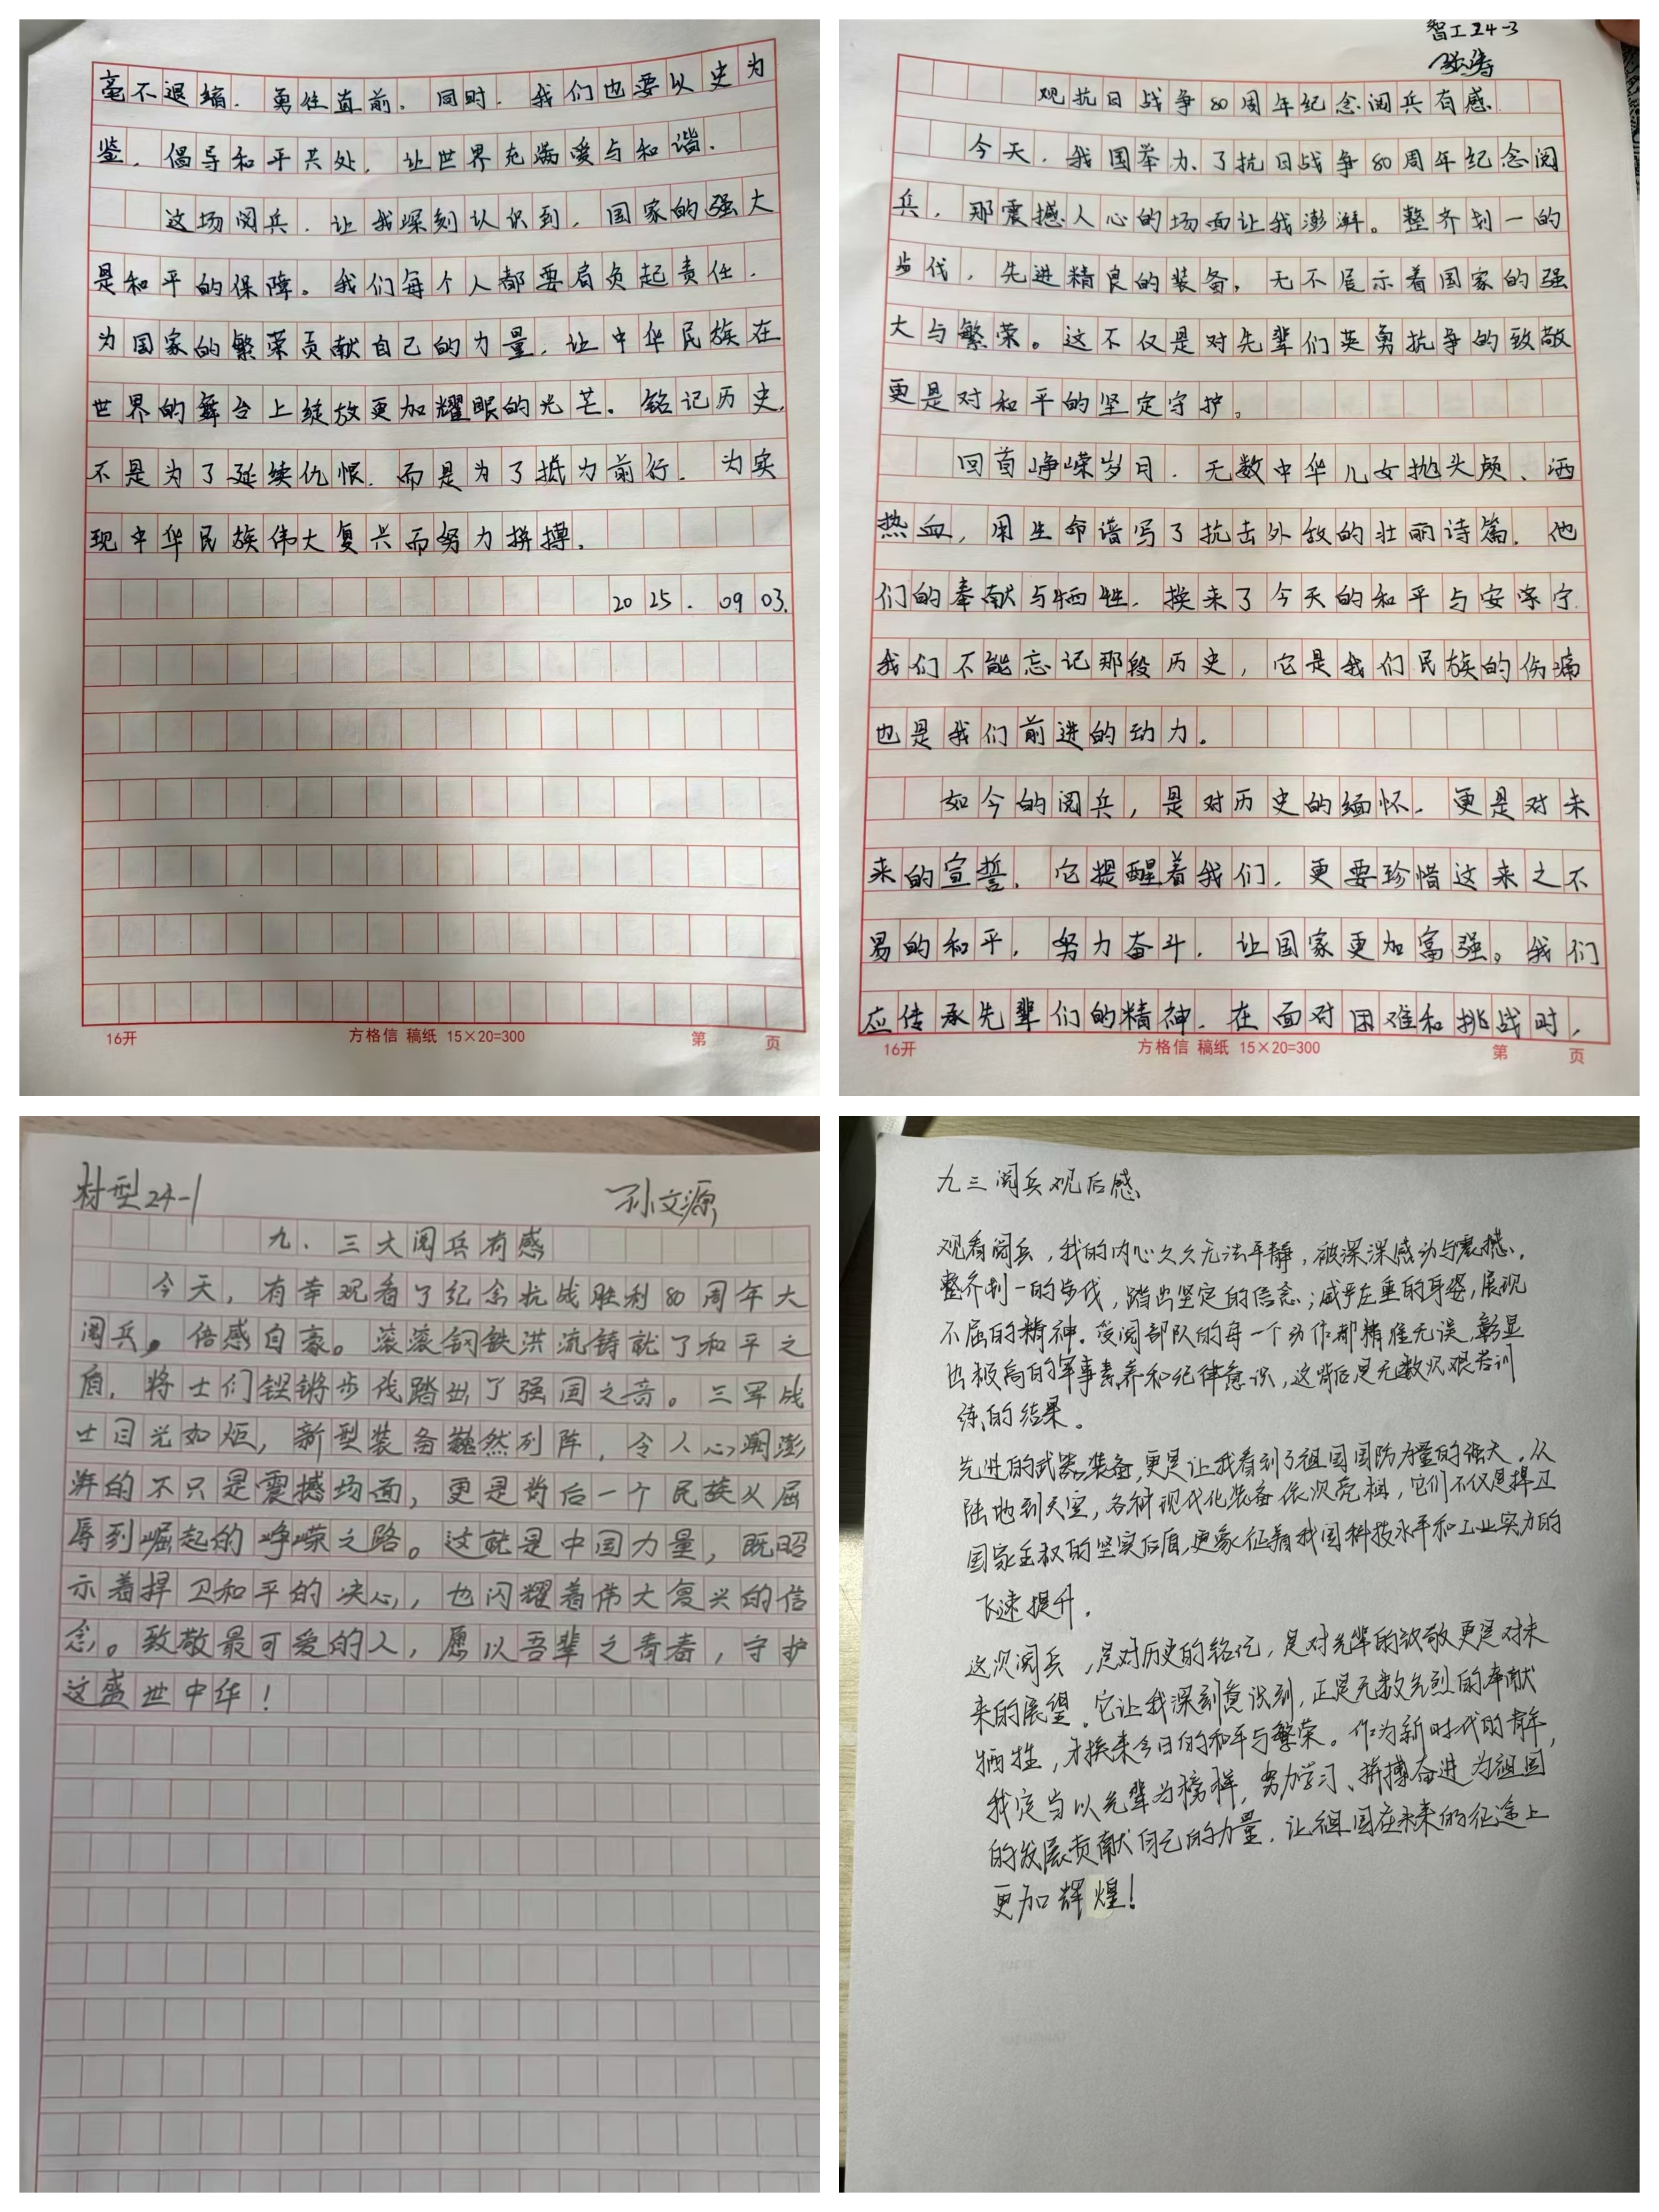 毫不退缩.勇往直前.同时.我们也要以史为
鉴.倡导和平共处.让世界充满爱与和谐.
这场阅兵.让我深刻认识到.国家的强大
是和平的保障。我们每个人都要肩负起责任.
为国家的繁荣贡献自己的力量.让中华民族在
世界的舞台上绽放更加耀眼的光芒.铭记历史.
不是为了延续仇恨.而是为了抵为前行.为实
现中华民族伟大复兴而努力拼搏.
2025.09 03.
16开 方格信 稿纸 15×20=300 第 页
智工24-3
观抗日战争80周年纪念阅兵有感
今天.我国举办了抗日战争80周年纪念阅
兵,那震撼人心的场面让我澎湃。整齐划一的
步伐,先进精良的装备,无不展示着国家的强
大与繁荣。这不仅是对先辈们英勇抗争的致敬
更是对和平的坚定守护。
回首峥嵘岁月.无数中华儿女抛头颅、洒
热血,用生命谱写了抗击外敌的壮丽诗篇.他
们的奉献与牺牲.换来了今天的和平与安宁.
我们不能忘记那段历史,它是我们民族的伤痛
也是我们前进的动力.
如今的阅兵,是对历史的缅怀.更是对未
来的宣誓.它提醒着我们.更要珍惜这来之不
易的和平.努力奋斗.让国家更加富强。我们
应传承先辈们的精神.在面对困难和挑战时,
16开 方格信 稿纸 15×20=300 第 页
材型24-1 孙文源
九、三大阅兵有感
今天,有幸观看了纪念抗战胜利80周年大
阅兵,倍感自豪。滚滚钢铁洪流铸就了和平之
盾,将士们铿锵步伐踏出了强国之音。三军战
士目光如炬,新型装备巍然列阵,令人心潮澎
湃的不只是震撼场面,更是背后一个民族从屈
辱到崛起的峥嵘之路。这就是中国力量,既昭
示着捍卫和平的决心,也闪耀着伟大复兴的信
念。致敬最可爱的人,愿以吾辈之青春,守护
这盛世中华!
九三阅兵观后感
观看阅兵,我的内心久久无法平静,被深深感动与震撼.
整齐划一的步伐,踏出坚定的信念;威严庄重的身姿,展现
不屈的精神.受阅部队的每一个动作都精准无误,彰显
出极高的军事素养和纪律意识,这背后是无数次艰苦训
练的结果。
先进的武器装备,更是让我看到了祖国国防力量的强大.从
陆地到天空,各种现代化装备依次亮相,它们不仅是捍卫
国家主权的坚实后盾,更象征着我国科技水平和工业实力的
飞速提升.
这次阅兵,是对历史的铭记,是对先辈的致敬更是对未
来的展望.它让我深刻意识到,正是无数先烈的奉献
牺牲,才换来今日的和平与繁荣。作为新时代的青年,
我定当以先辈为榜样,努力学习、拼搏奋进为祖国
的发展贡献自己的力量.让祖国在未来的征途上
更加辉煌!